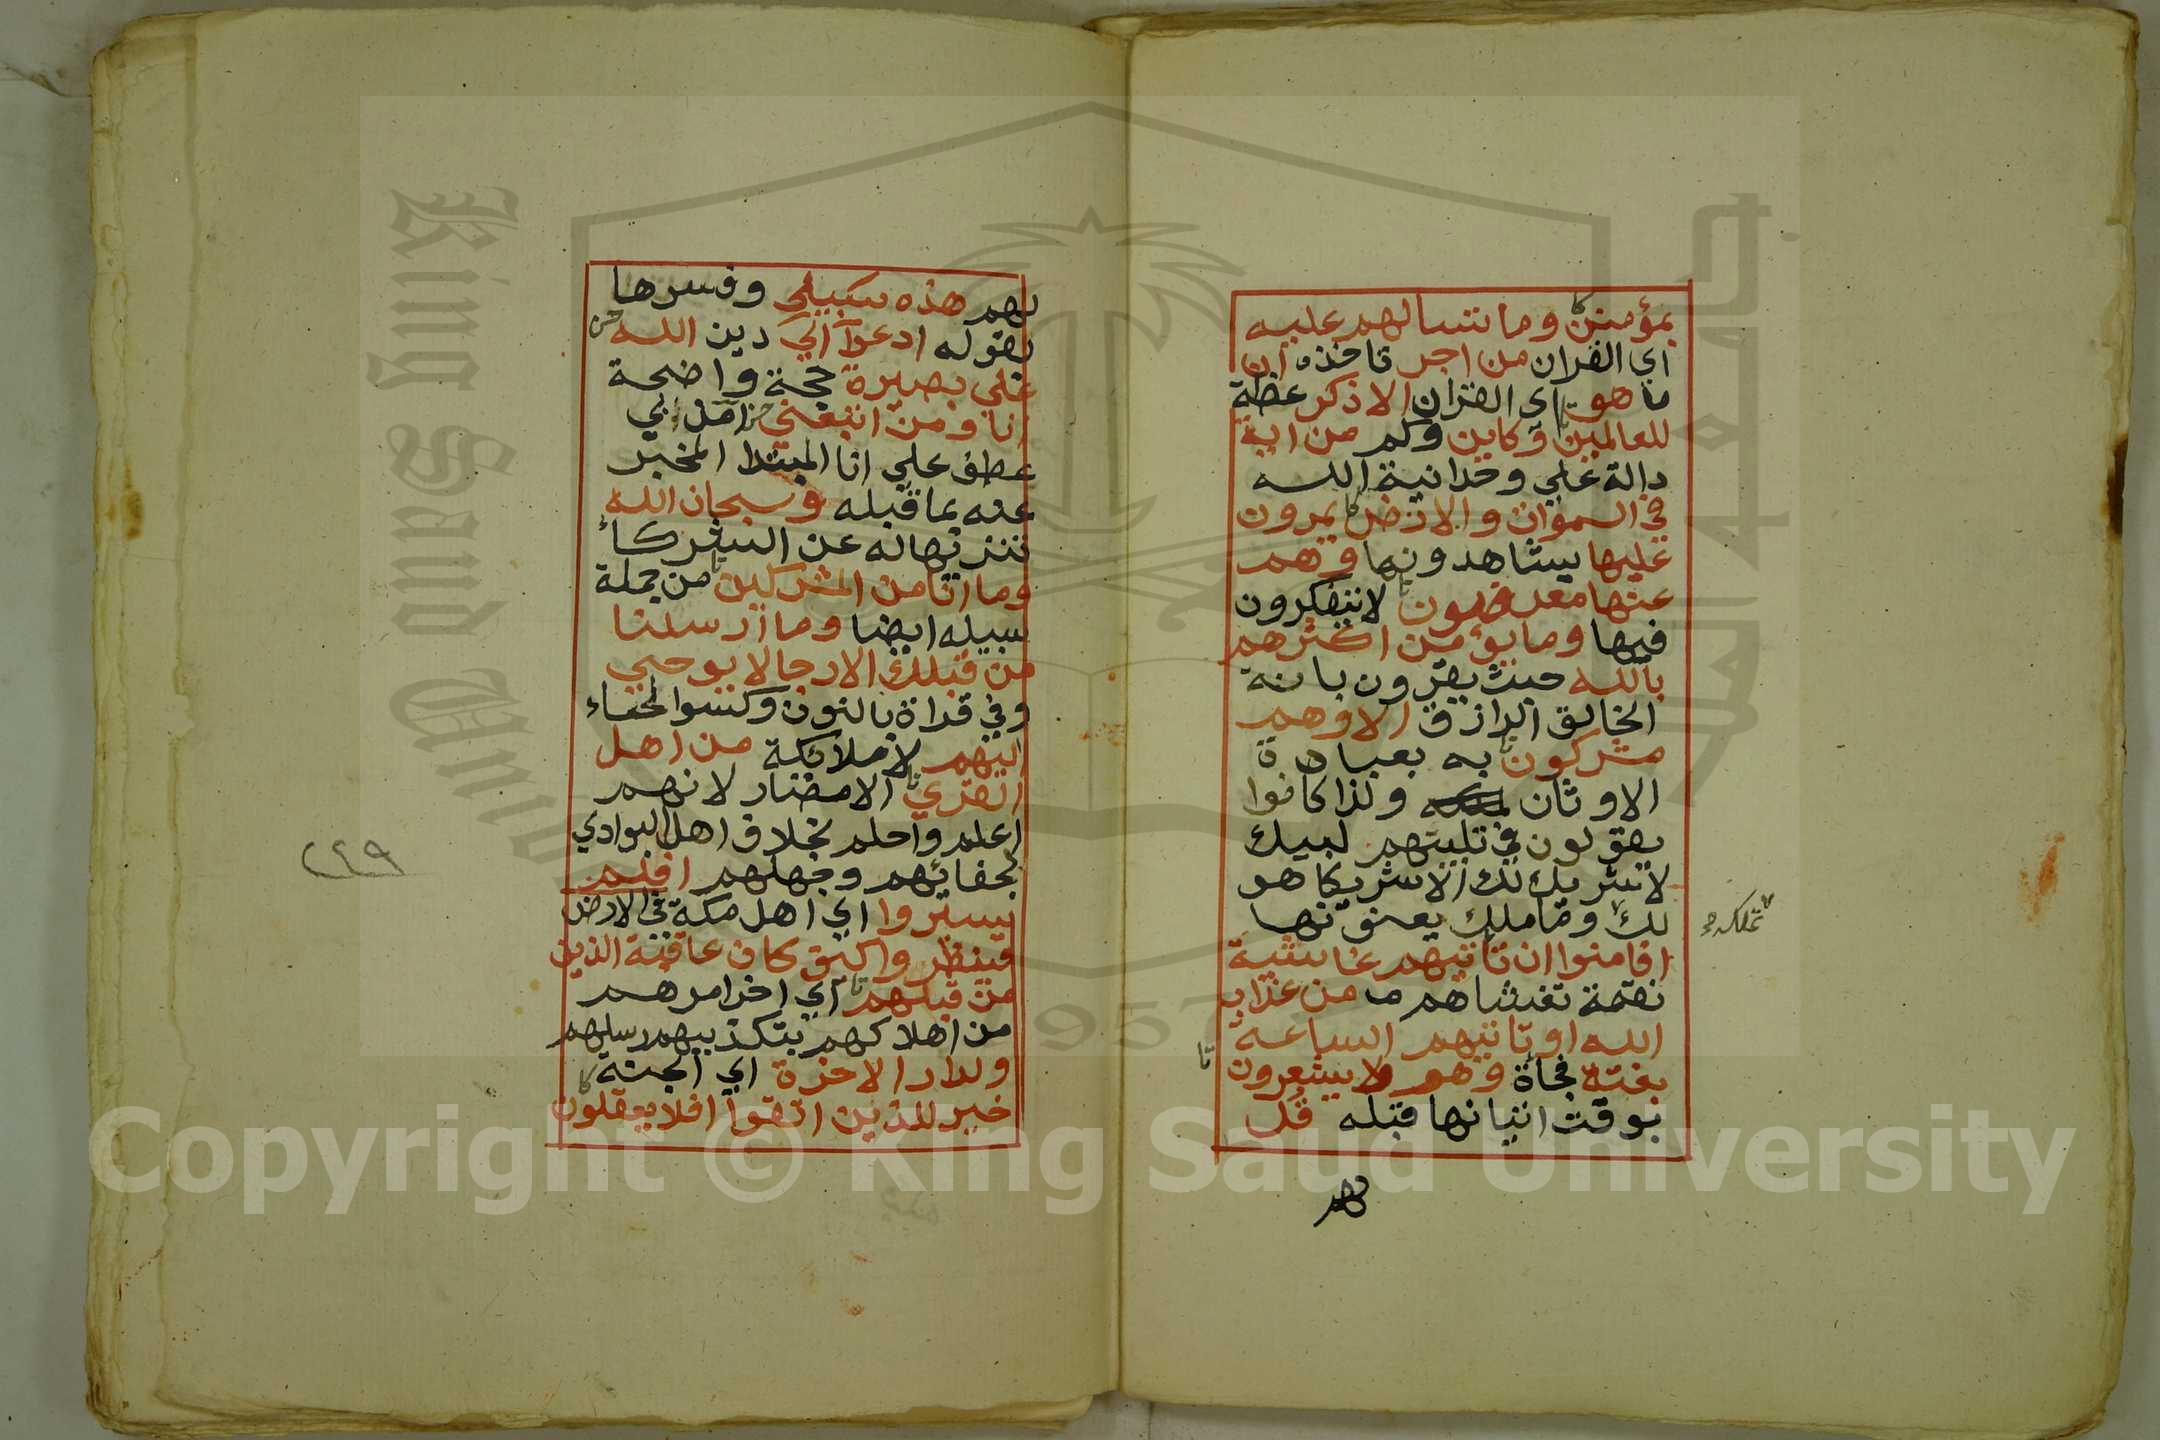 بمؤمنين وما تسالهم عليه
اى القران من اجر تاخذه ان
ما هو اي القران الا ذكر عظة
للعالمين وكاين وكم من اية
دالة علي وحدانية الله
في السموات والارض يمرون
عليها يشاهدونها وهم
عنها معرضون لا يتفكرون
فيها وما يؤمن اكثرهم
بالله حيث يقرون بانه
الخالق الرازق الا وهم
مشركون به بعبادة
الاوثان ولذا كانوا
يقولون في تلبيتهم لبيك
لا شريك لك الا شريكا هو
لك وما ملك يعنونها
تملكه
افامنوا ان تاتيهم غاشية
نقمة تغشاهم من عذاب
الله او تاتيهم الساعة
بغتة فجأة وهم لا يشعرون
بوقت اتيانها قبله قل
لهم
لهم هذه سبيلي وفسرها
بقوله ادعوا الي دين الله
علي بصيرة حجة واضحة
انا ومن اتبعني امن بي
عطف علي انا المبتدا المخبر
عنه بما قبله وسبحان الله
تنزيها له عن الشركاء
وما انا من المشركين من جملة
سبيله ايضا وما ارسلنا
من قبلك الا رجالا يوحي
وفي قراة بالنون وكسر الحاء
اليهم لا ملائكة من اهل
القري الامصار لانهم
اعلم واحلم بخلاف اهل البوادي
لجفائهم وجهلهم افلم
يسيروا اي اهل مكة في الارض
فينظروا كيف كان عاقبة الذين
من قبلهم اي اخر امرهم
من اهلاكهم بتكذيبهم رسلهم
ولدار الاخرة اي الجنة
خير للذين اتقوا افلا يعقلون
٢٢٩
King Saud University
1957
Copyright © King Saud University